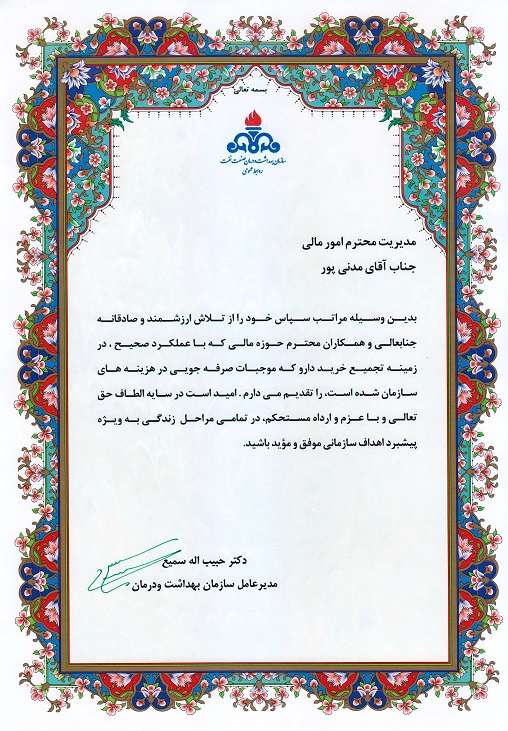 بسمه تعالی
سازمان بهداشت و درمان صنعت نفت
روابط عمومی
مدیریت محترم امور مالی
جناب آقای مدنی پور
بدین وسیله مراتب سپاس خود را از تلاش ارزشمند و صادقانه
جنابعالی و همکاران محترم حوزه مالی که با عملکرد صحیح ، در
زمینه تجمیع خرید دارو که موجبات صرفه جویی در هزینه های
سازمان شده است، را تقدیم می دارم . امید است در سایه الطاف حق
تعالی و با عزم و ارداه مستحکم، در تمامی مراحل زندگی به ویژه
پیشبرد اهداف سازمانی موفق و مؤید باشید.
دکتر حبیب اله سمیع
مدیرعامل سازمان بهداشت ودرمان